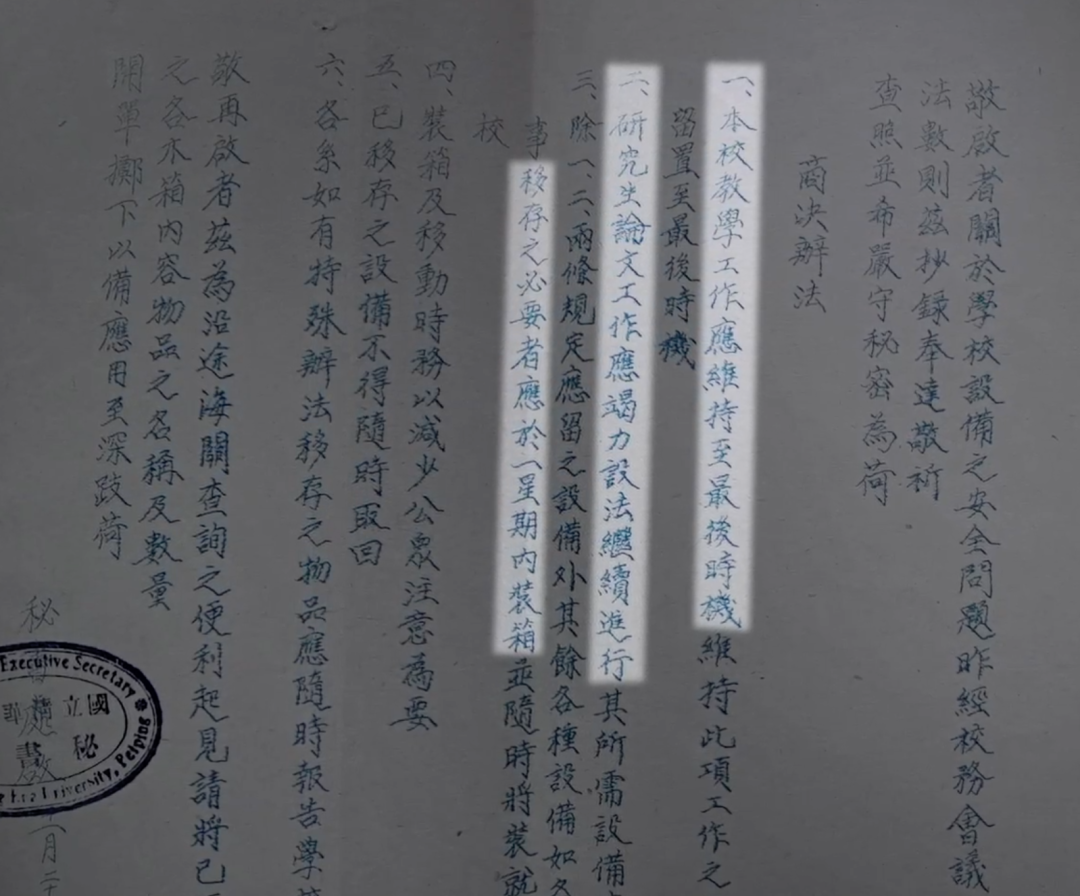 敬啟者關於學校設備之安全問題昨經校務會議
法數則茲抄録奉達敬祈
查照並希嚴守秘密為荷
商決辦法
一、本校教學工作應維持至最後時機維持此項工作之
留置至最後時機
二、研究生論文工作應竭力設法繼續進行其所需設備
三、除一、二、兩條規定應留之設備外其餘各種設備如
事移存之必要者應於一星期内裝箱並隨時將裝就
校
四、裝箱及移動時務以減少公眾注意為要
五、已移存之設備不得隨時取回
六、各系如有特殊辦法移存之物品應隨時報告學
敬再啟者茲為沿途海關查詢之便利起見請將已
之各木箱内容物品之名稱及數量
開單擲下以備應用至深跂荷
秘 處 月二十
Executive Secretary
國立
秘
University, Peiping